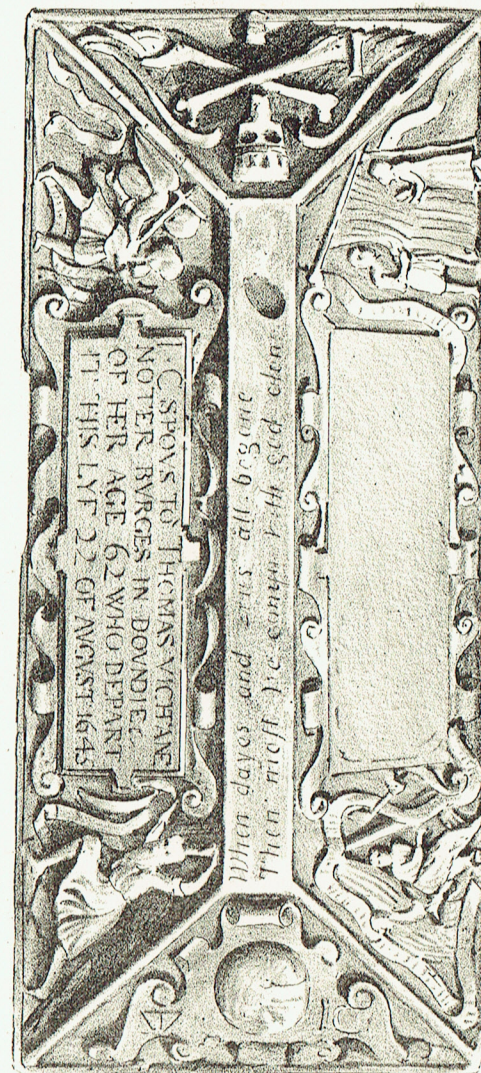 I C SPOVS TO THOMAS VICHTANE
NOTER BVRGES IN DOVNDIE
OF HER AGE 62 WHO DEPART
IT THIS LYF 22 OF AVGVST 1645
When dayes and all begone
Then vith god
IC